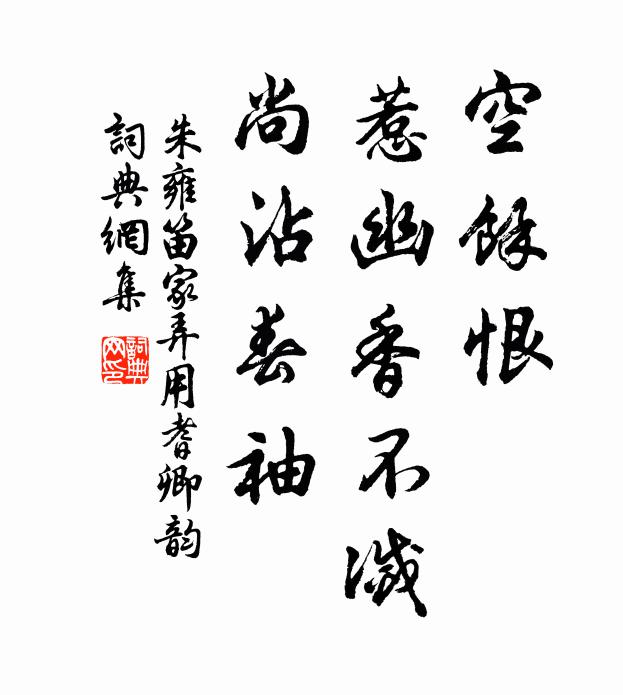 空餘恨
惹幽香不滅
尚沾春袖
朱雍笛家弄用耆卿韵
詞典網集
詞典网印